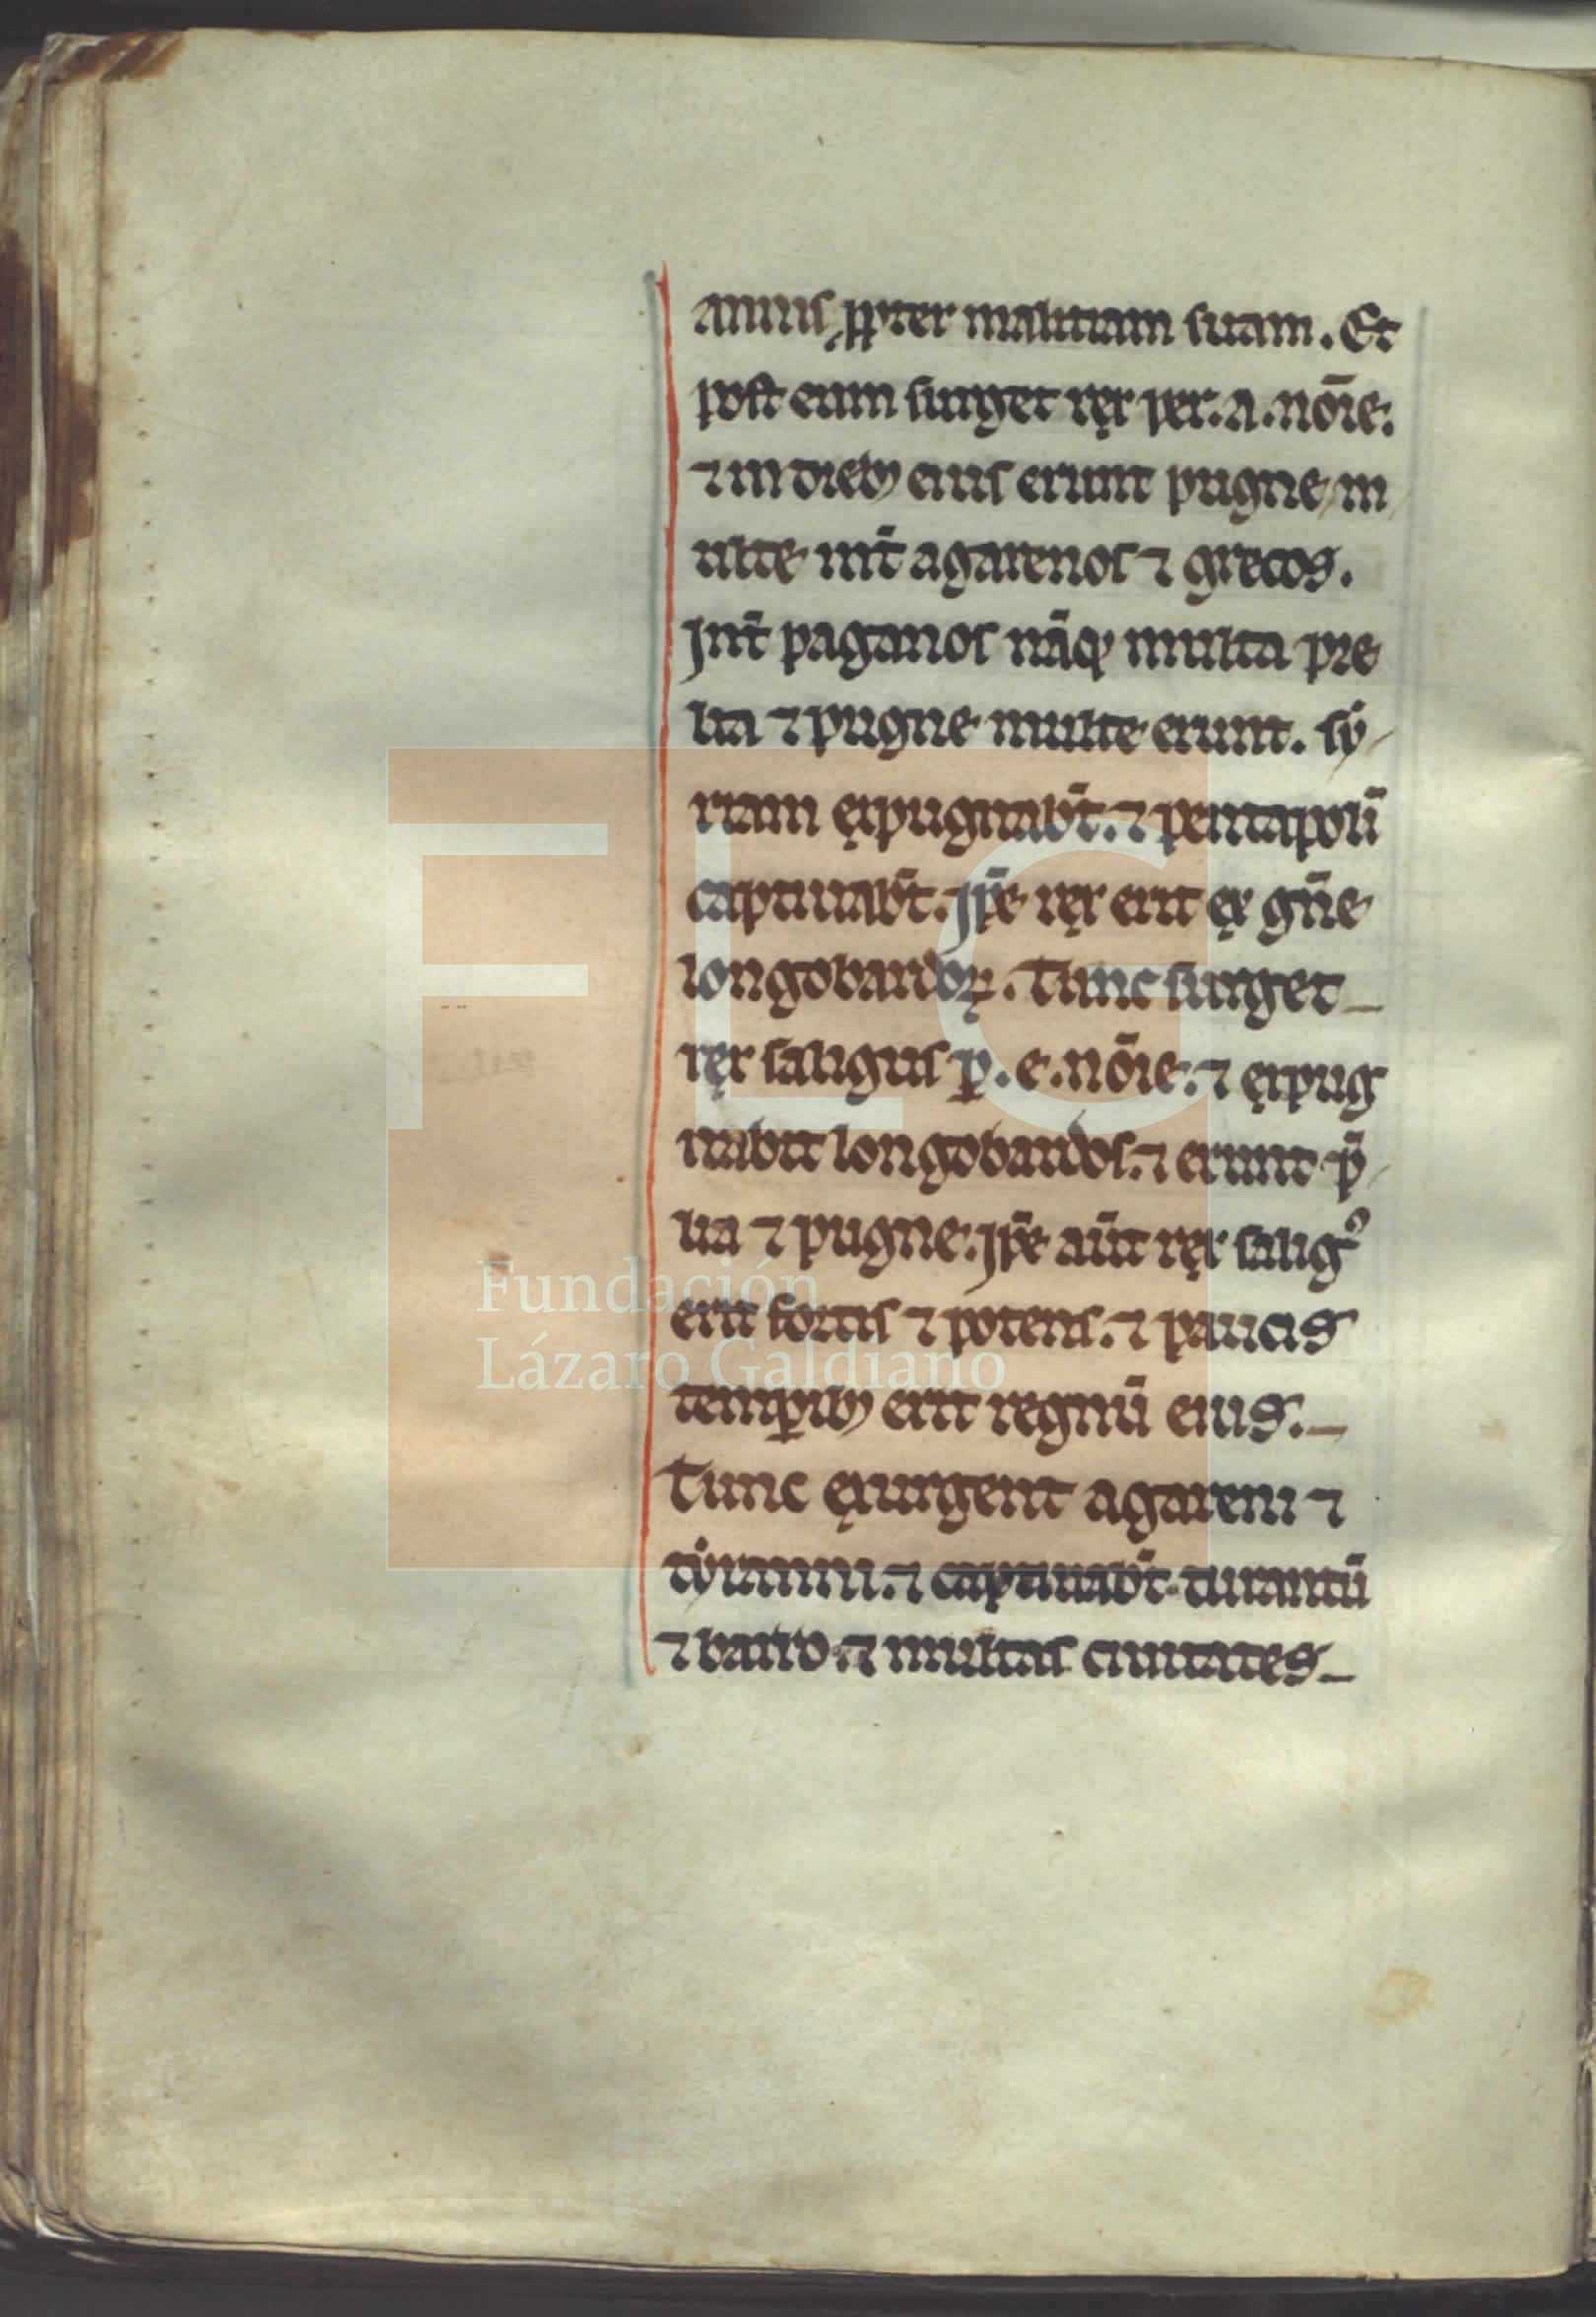 annis ꝓpter malitiam suam. Et
post eum surget rex per .a. nōīe.
⁊ in dieb; eius erunt pugne m
ulte int̄ agarenos ⁊ grecos.
Jnt̄ paganos nāq; multa pre
lia ⁊ pugne multe erunt. sẏ-
riam expugnab̄t. ⁊ pentapolī
captiuab̄t. Jp̄e rex erit ex gn̄e
longobardoꝝ. Tunc surget
rex saligus ꝑ .e. nōīe. ⁊ expug
nabit longobardos. ⁊ erunt p̄
lia ⁊ pugne. Jp̄e aūt rex saligꝰ
erit fortis ⁊ potens. ⁊ paucis
temꝑib; erit regnū eius.
Tunc exurgent agareni ⁊
tẏranni. ⁊ captiuab̄t turantū
⁊ baro. ⁊ multas ciuitates
Fundación
Lázaro Galdiano
FLG